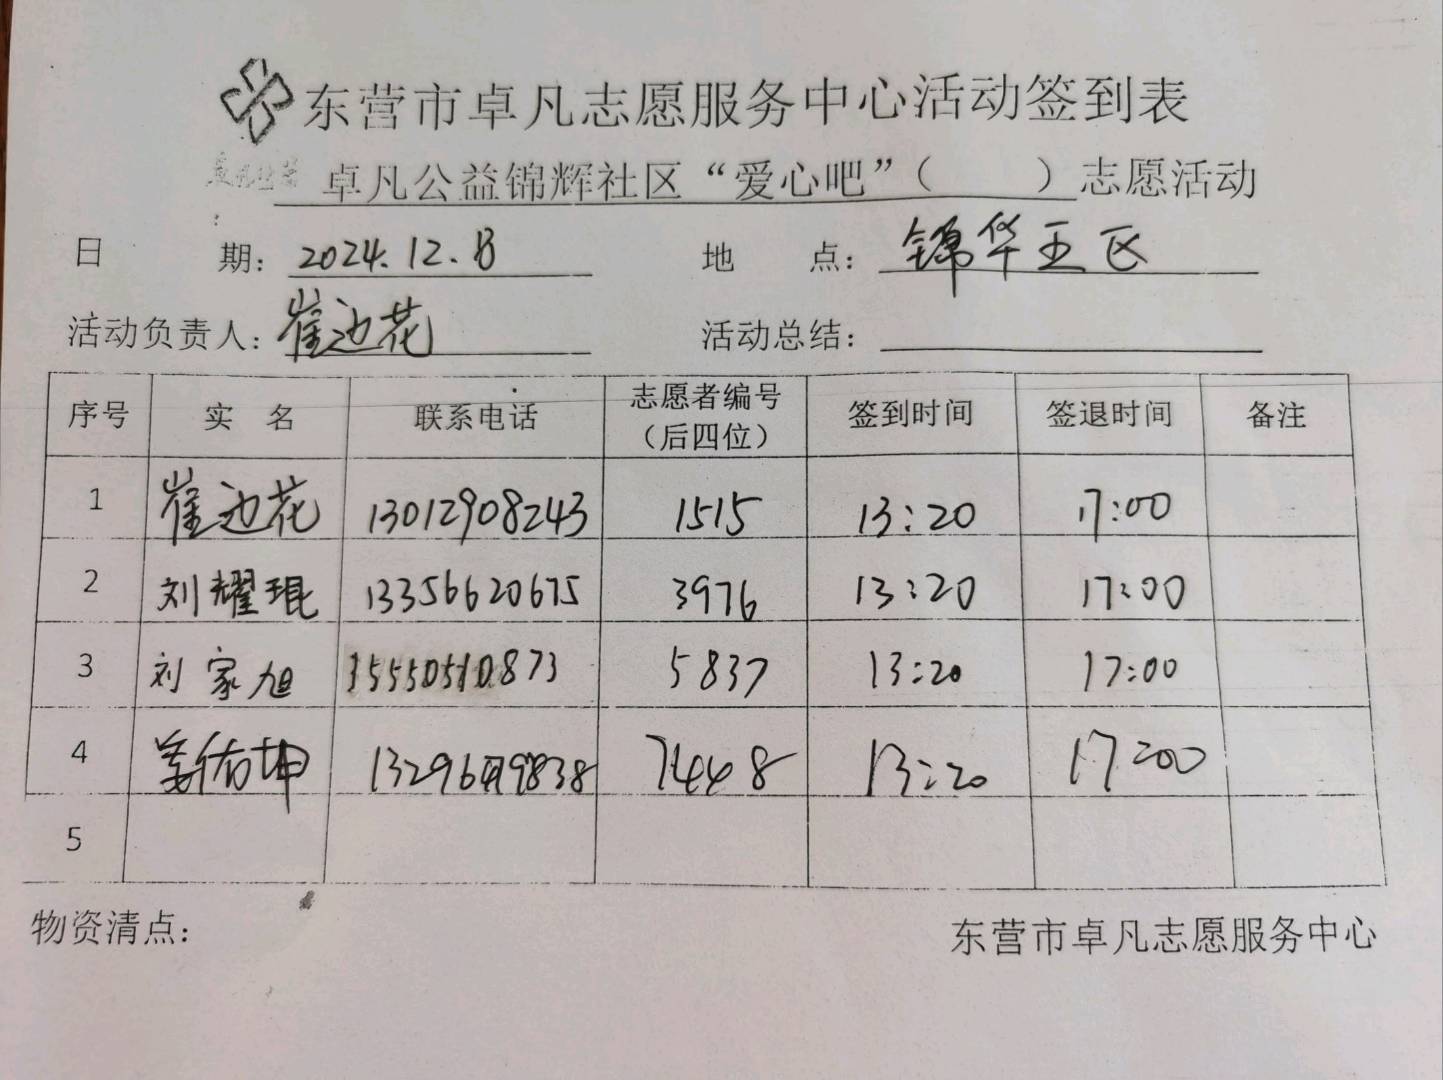 东营市卓凡志愿服务中心活动签到表
卓凡公益锦辉社区“爱心吧”（ ）志愿活动
日 期：2024.12.13 地 点：锦华五区
活动负责人：崔边花 活动总结：
序号 实 名 联系电话 志愿者编号（后四位） 签到时间 签退时间 备注
1 崔边花 13012908243 1515 13:20 17:00
2 刘耀琨 13356620675 3976 13:20 17:00
3 刘家旭 15550510873 5837 13:20 17:00
4 姜佑坤 7448 13:20 17:00
5
物资清点： 东营市卓凡志愿服务中心